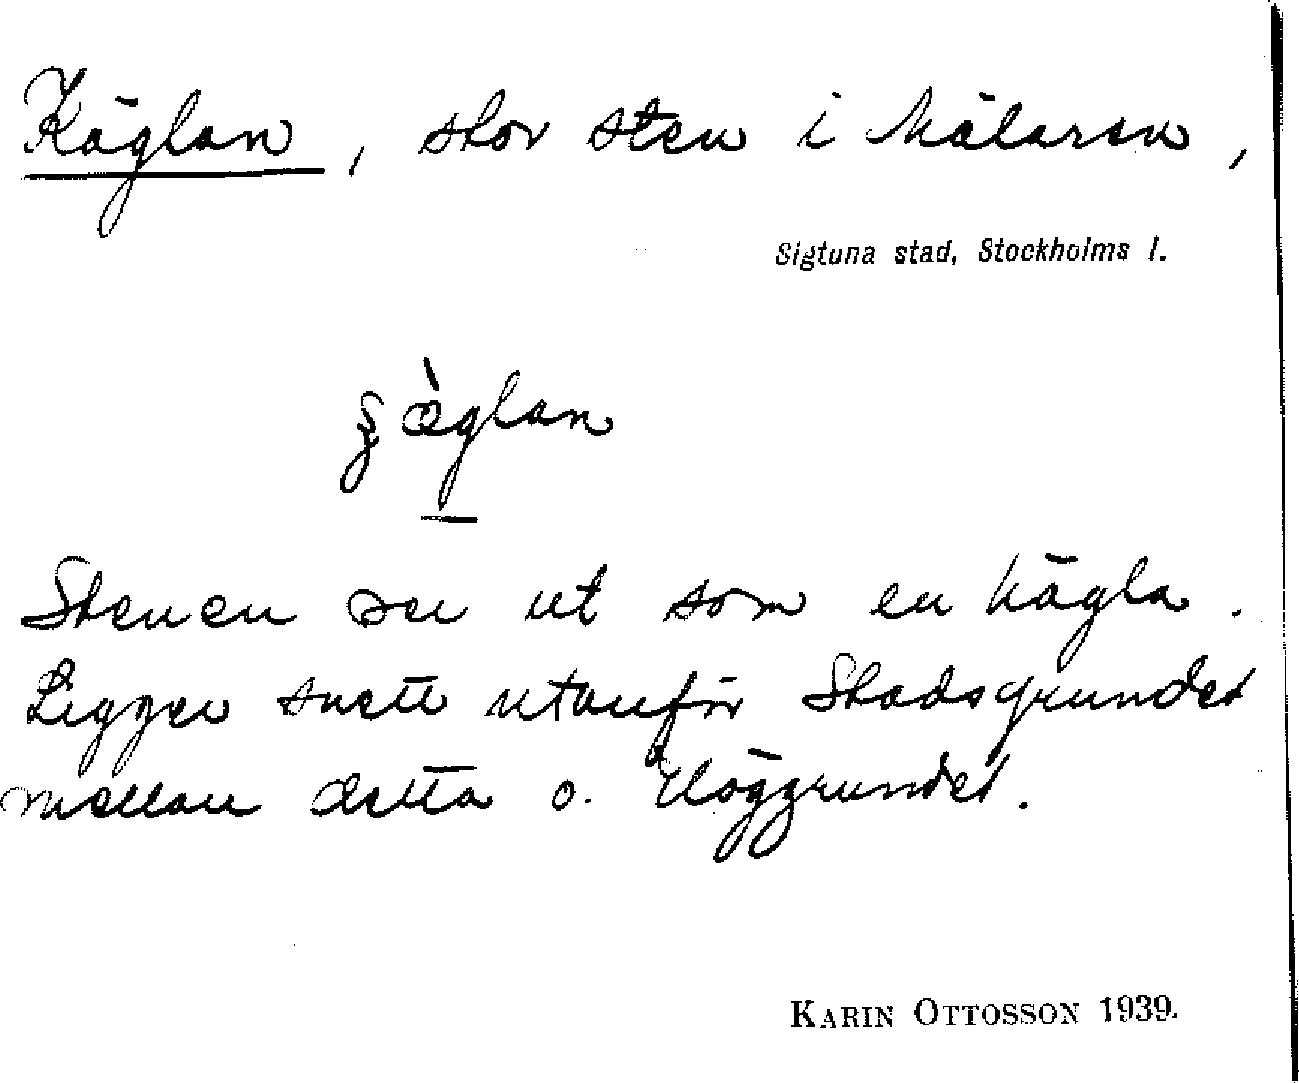 Käglan, stor sten i Mälaren,
Sigtuna stad, Stockholms l.
æ̀glan
Stenen ser ut som en kägla.
Ligger snett utanför Stadsgrundet
mellan detta o. Höggrundet.
KARIN OTTOSSON 1939.